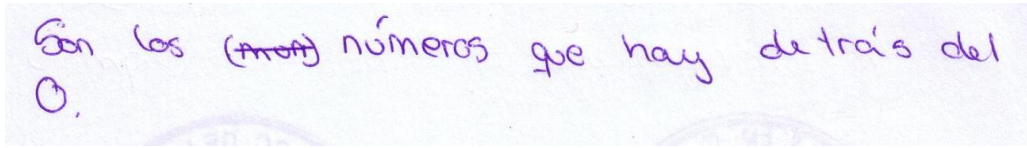 Son los números que hay detrás del
0.